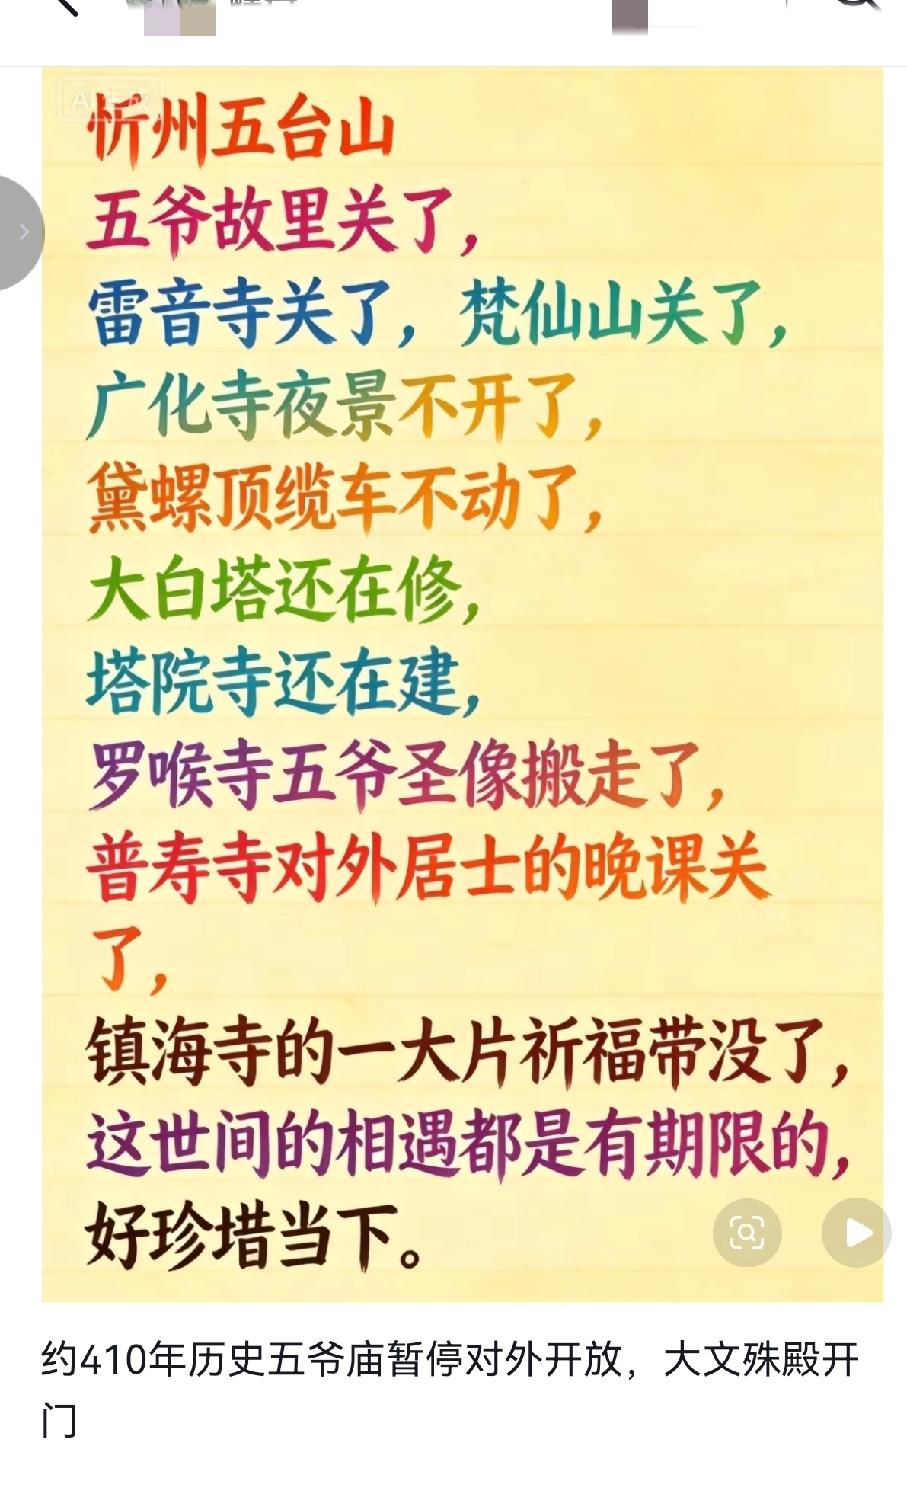 AI生成
忻州五台山
五爷故里关了，
雷音寺关了，梵仙山关了，
广化寺夜景不开了，
黛螺顶缆车不动了，
大白塔还在修，
塔院寺还在建，
罗喉寺五爷圣像搬走了，
普寿寺对外居士的晚课关
了，
镇海寺的一大片祈福带没了，
这世间的相遇都是有期限的，
好珍惜当下。
约410年历史五爷庙暂停对外开放，大文殊殿开
门